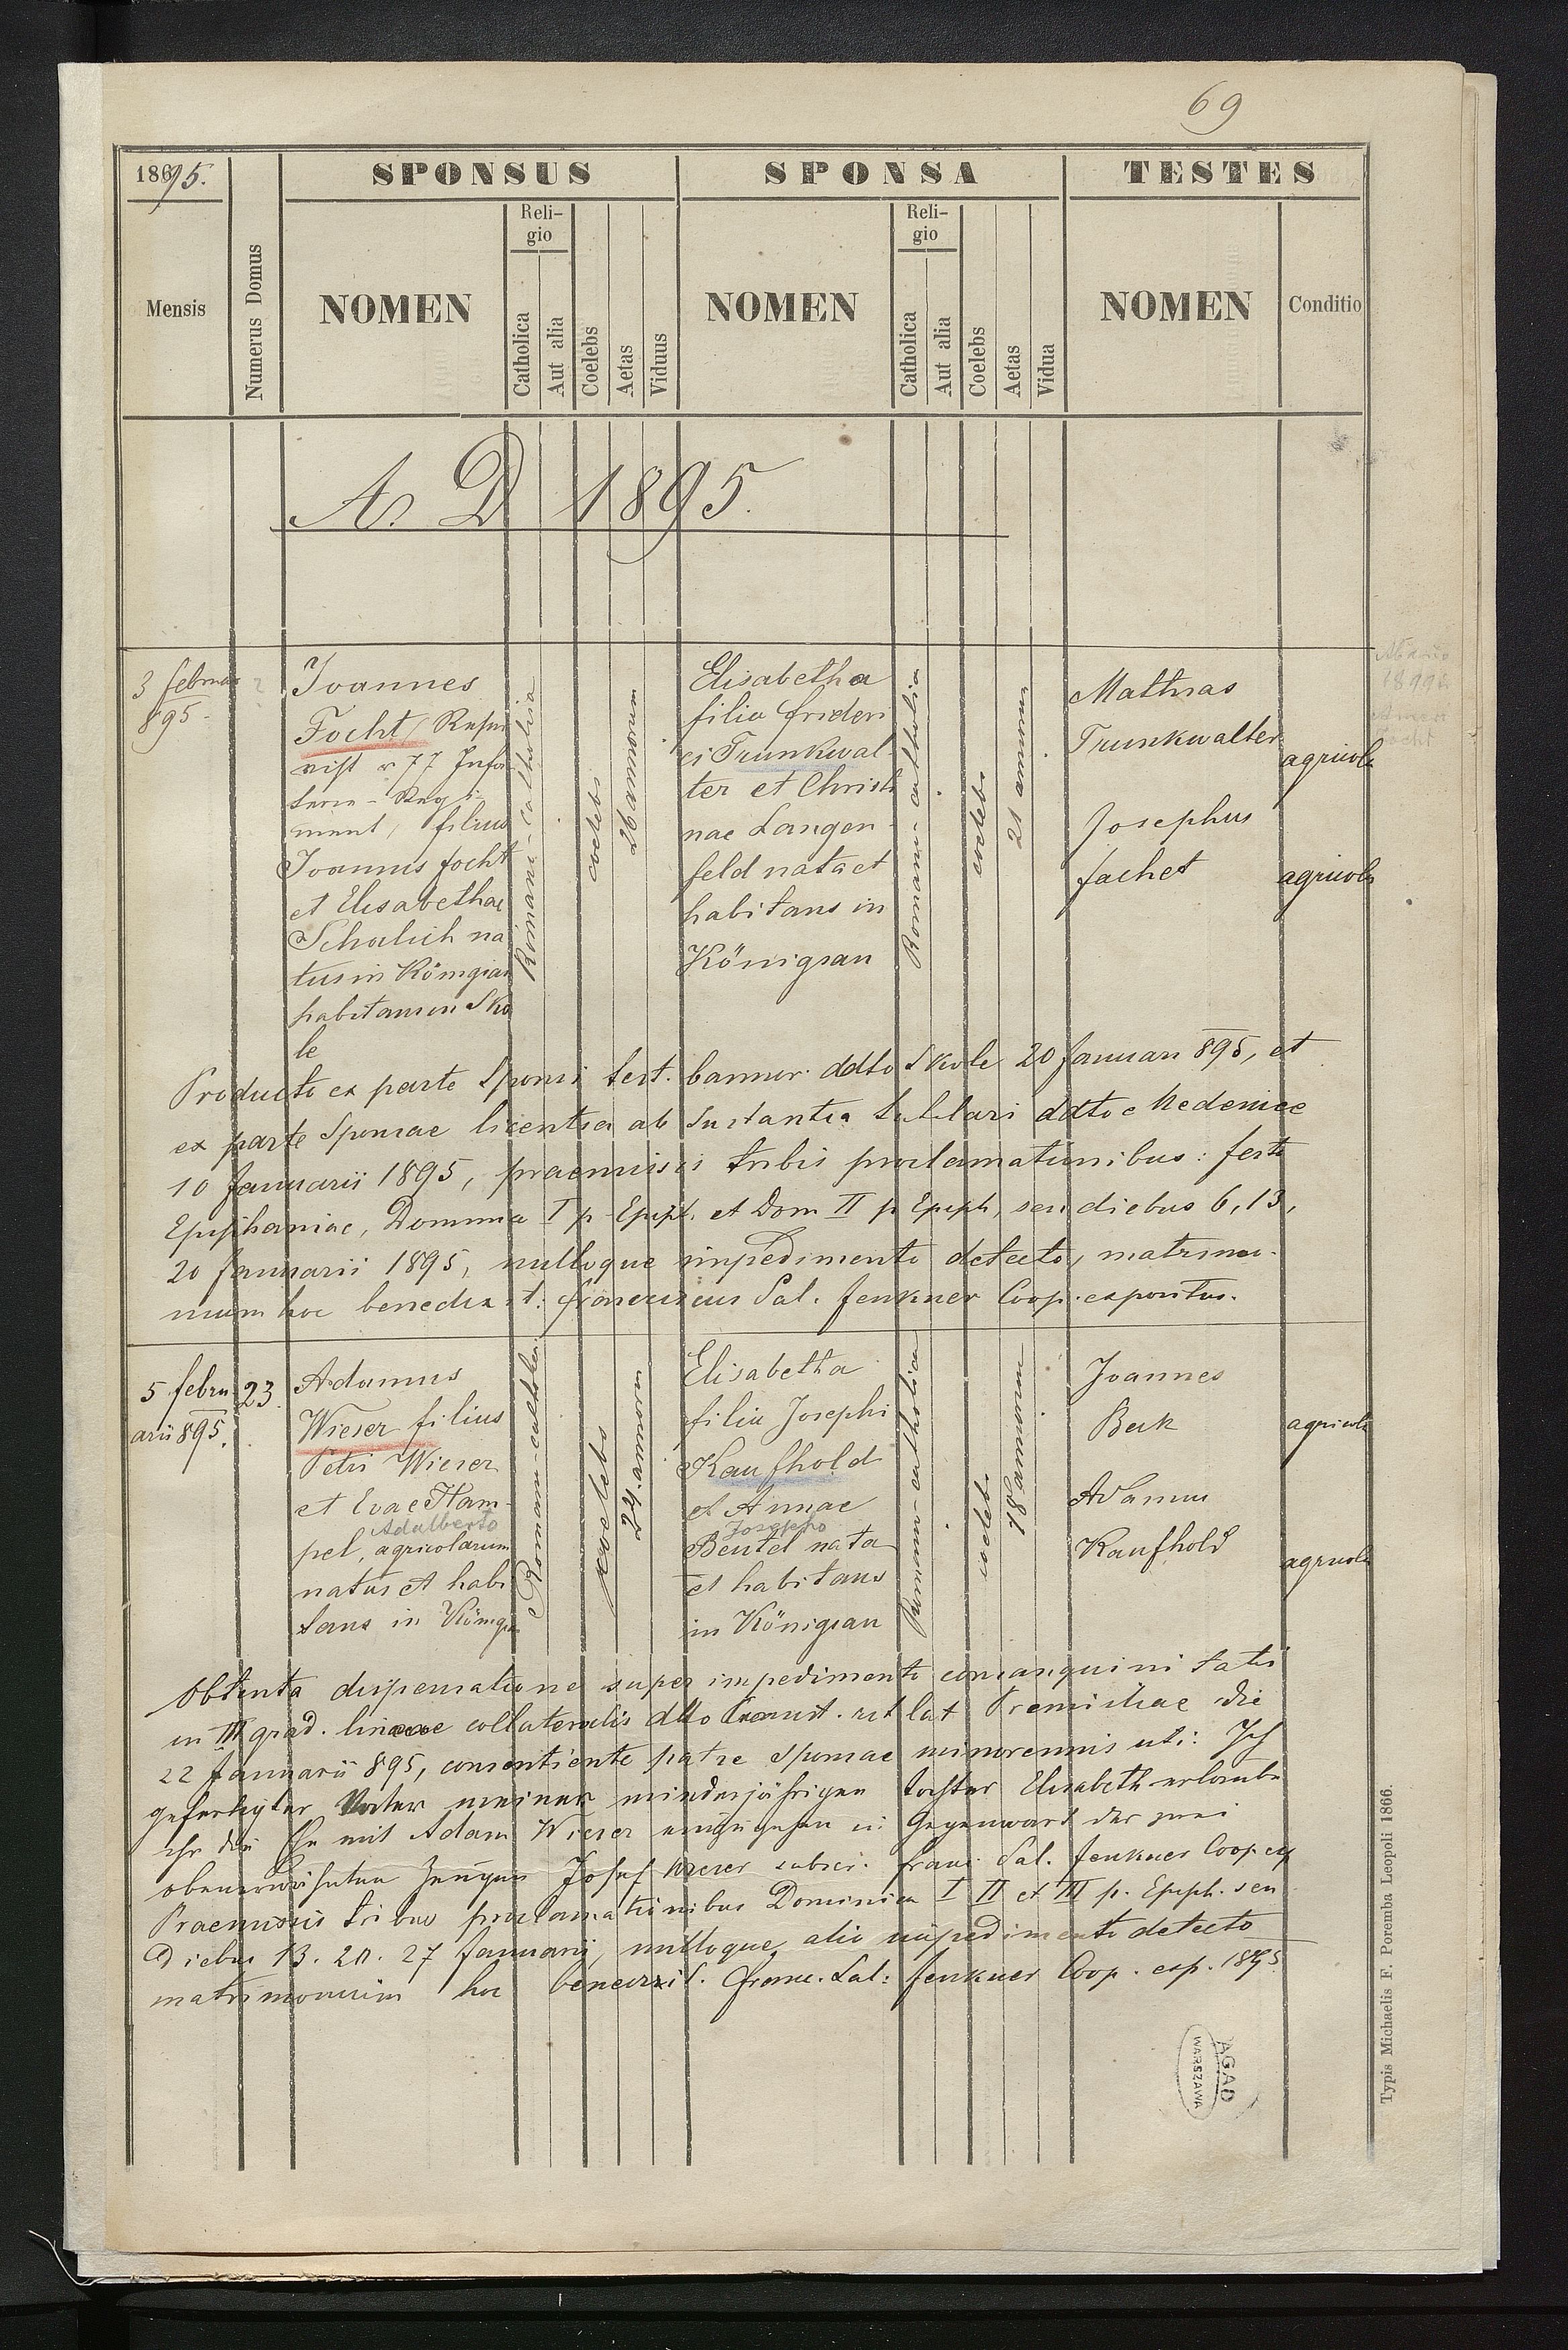 69
1895.
SPONSUS
SPONSA
TESTES
Mensis
Numerus Domus
NOMEN
Religio
Catholica
Aut alia
Coelebs
Aetas
Viduus
NOMEN
Religio
Catholica
Aut alia
Coelebs
Aetas
Vidua
NOMEN
Conditio
A. D 1895.
3 februar
895.
Joannes
Focht / Reser
vist v 77 Infan
terie - Regi-
ment, filius
Joannis focht
et Elisabethae
Schalich na
tus in Königsau
habitans in Sko
le
Romano-catholica
coelebs
26 annorum
Elisabetha
filia frideri
ci Trunkwal-
ter et Christi
nae Langen-
feld nata et
habitans in
Königsau
Romano-catholica
coelebs
21 annorum
Mathias
Trunkwalter
agricola
Josephus
fachet
agricola
Producto ex parte Sponsi test. bannor. ddto Skole 20 Januari 895, et
ex parte Sponsae licentia ab Instantia tutelari ddto e Medenice
10 Januarii 1895, praemissis tribis proclamationibus: festo
Epiphaniae, Dominica I p Epiph. et Dom II p Epiph, seu diebus 6, 13,
20 Januarii 1895, nulloque impedimento detecto, matrimo-
nium hoc benedixit: franciscus Sal. Jenkner Coop. expositus.
5 febru
arii 895.
23
Adamus
Wieser filius
Petri Wieser
et Evae Ham-
Adalberto
pel, agricolarum
natus et habi
tans in Königs
Romano-catholica
coelebs
24. annorum
Elisabetha
filia Josephi
Kaufhold
et Annae
Josepho
Beutel nata
et habitans
in Königsau
Romano-catholica
coelebs
18 annorum
Joannes
Beck
agricola
Adamus
Kaufhold
agricola
Obtenta dispensatione super impedimento consanguinitatis
in III grad. lineae collateralis ddto Consist. rit lat Premisliae die
22 Januarii 895, consentiente patre sponsae minorennis uti: Ich
gefertigter Vater meiner minderjährigen Tochter Elisabeth erlaube
ihr die Ehe mit Adam Wieser einzugehen in Gegenwart der zwei
Zeugen Josef subscr. franc. Sal. Jenkner Coop. ex
Praemissis tribus proclamationibus Dominica I II et III p. Epiph. seu
Diebus 13. 20. 27 Januarij, nulloque alio impedimento detecto
matrimonium hoc benedixit. franc. Sal: Jenkner Coop. exp. 1895
AGAD
WARSZAWA
Typis Michaelis F. Poremba Leopoli 1866.